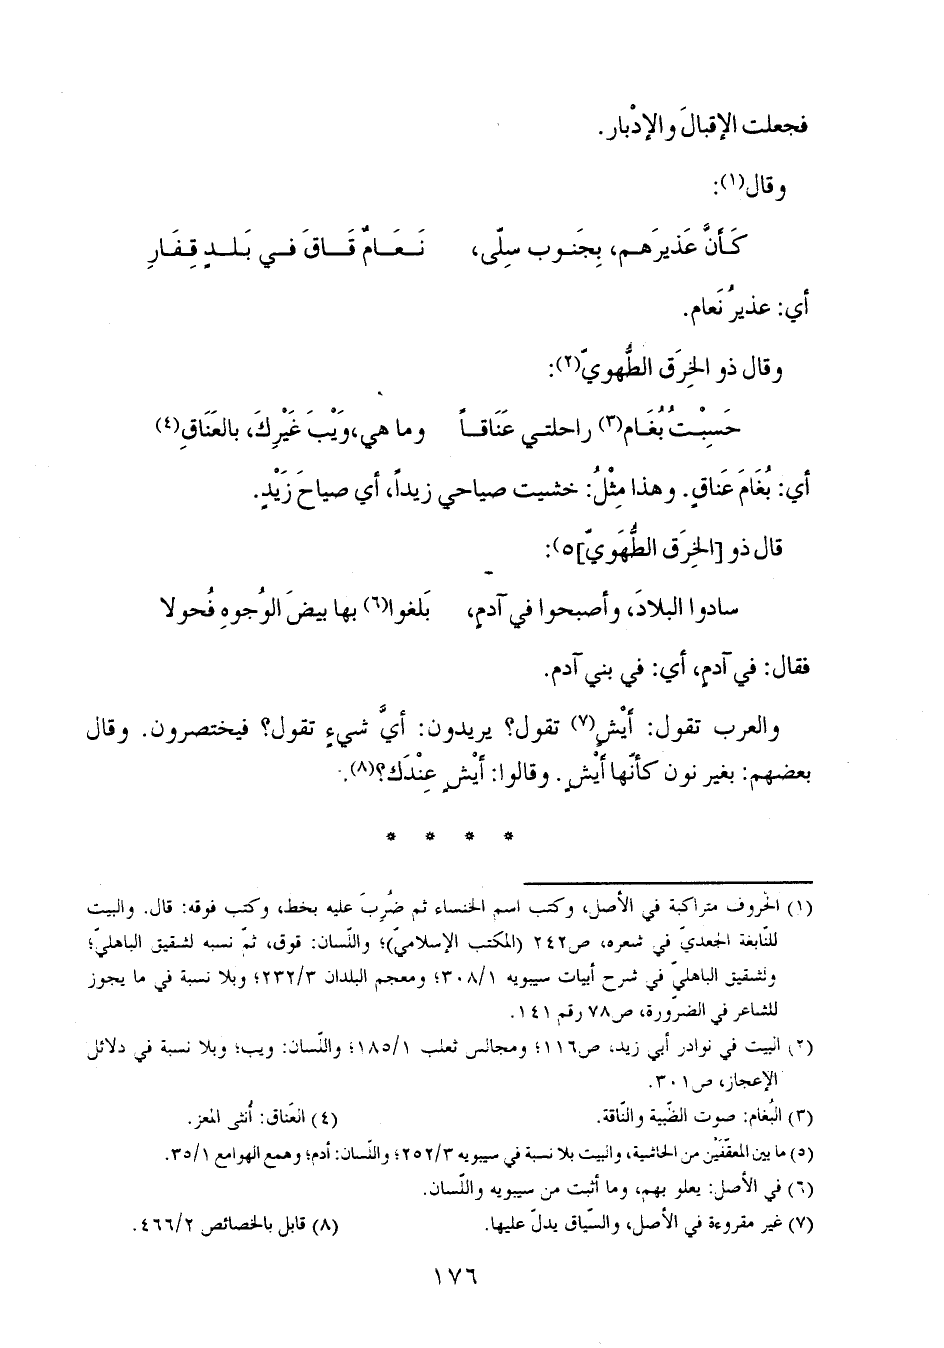 فجعلت الإقبالَ والإدْبار.
وقال(١):
كَأنَّ عَذيرَهـم، بِجَنـوب سِلّى، نَـعَـامٌ قَـاقَ فـي بَـلـدٍ قِفَـارِ
أي: عذيرُ نَعام.
وقال ذو الخِرَق الطُّهويّ(٢):
حَسِبْـتُ بُغَـام(٣) راحلتـي عَنَاقـاً وما هي، وَيْبَ غَيْرِكَ، بالعَنَاقِ(٤)
أي: بُغَامَ عَناقٍ. وهذا مِثْلُ: خشيت صياحي زيداً، أي صياحَ زَيْدٍ.
قال ذو [الخِرَق الطُّهَويّ]٥):
سادوا البلادَ، وأصبحوا في آدمٍ، بَلغوا(٦) بها بيضَ الوُجوهِ فُحولا
فقال: في آدمٍ، أي: في بني آدم.
والعرب تقول: أَيْشٍ(٧) تقول؟ يريدون: أيَّ شيءٍ تقول؟ فيختصرون. وقال
بعضهم: بغير نون كأنّها أَيْشٍ. وقالوا: أَيْشٍ عِنْدَك؟(٨).
* * * *
(١) الحروف متراكبة في الأصل، وكتب اسم الخنساء ثم ضُرِبَ عليه بخط، وكتب فوقه: قال. والبيت
للنّابغة الجعديّ في شعره، ص٢٤٢ (المكتب الإسلاميّ)؛ واللّسان: قوق، ثمّ نسبه لشقيق الباهليّ؛
ولشقيق الباهليّ في شرح أبيات سيبويه ٣٠٨/١؛ ومعجم البلدان ٢٣٢/٣؛ وبلا نسبة في ما يجوز
للشاعر في الضّرورة، ص٧٨ رقم ١٤١.
(٢) البيت في نوادر أبي زيد، ص١١٦؛ ومجالس ثعلب ١٨٥/١؛ واللّسان: ويب؛ وبلا نسبة في دلائل
الإعجاز، ص٣٠١.
(٣) البُغام: صوت الظّبية والنّاقة. (٤) العَناق: أُنثى المعز.
(٥) ما بين المعقّفَيْن من الحاشية، والبيت بلا نسبة في سيبويه ٢٥٢/٣؛ واللّسان: أدم؛ وهمع الهوامع ٣٥/١.
(٦) في الأصل: يعلو بهم، وما أثبت من سيبويه واللّسان.
(٧) غير مقروءة في الأصل، والسّياق يدلّ عليها. (٨) قابل بالخصائص ٤٦٦/٢.
١٧٦